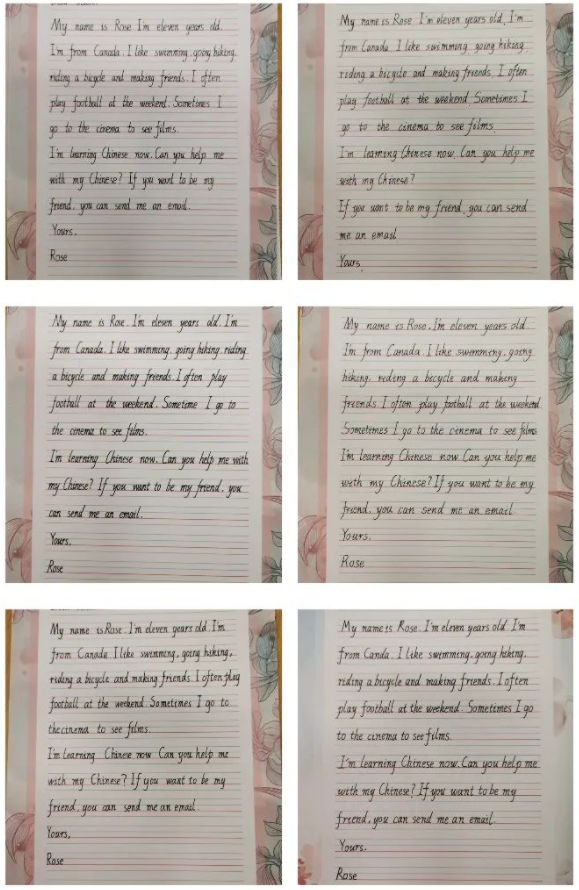 My name is Rose I'm eleven years old.
I'm from Canada. I like swimming, going hiking,
riding a bicycle and making friends. I often
play football at the weekend. Sometimes I
go to the cinema to see films.
I'm learning Chinese now. Can you help me
with my Chinese? If you want to be my
friend, you can send me an email.
Yours,
Rose
My name is Rose I'm eleven years old, I'm
from Canada. I like swimming, going hiking
riding a bicycle and making friends. I often
play football at the weekend Sometimes I
go to the cinema to see films.
I'm learning Chinese now. Can you help me
with my Chinese?
If you want to be my friend, you can send
me an email
Yours,
My name is Rose. I'm eleven years old. I'm
from Canada. I like swimming, going hiking, riding
a bicycle and making friends. I often play
football at the weekend. Sometime I go to
the cinema to see films.
I'm learning Chinese now. Can you help me with
my Chinese? If you want to be my friend, you
can send me an email.
Yours,
Rose
My name is Rose. I'm eleven years old
I'm from Canada. I like swimming, going
hiking, riding a bicycle and making
friends I often play football at the weekend
Sometimes I go to the cinema to see films
I'm learning Chinese now Can you help me
with my Chinese? If you want to be my
friend, you can send me an email
Yours,
Rose
My name is Rose. I'm eleven years old. I'm
from Canada I like swimming, going hiking,
riding a bicycle and making friends. I often play
football at the weekend. Sometimes I go to
the cinema to see films.
I'm learning Chinese now Can you help me
with my Chinese? If you want to be my
friend, you can send me an email.
Yours,
Rose
My name is Rose. I'm eleven years old I'm
from Canda. I like swimming, going hiking,
riding a bicycle and making friends. I often
play football at the weekend. Sometimes I go
to the cinema to see films.
I'm learning Chinese now. Can you help me
with my Chinese? If you want to be my
friend, you can send me an email.
Yours,
Rose